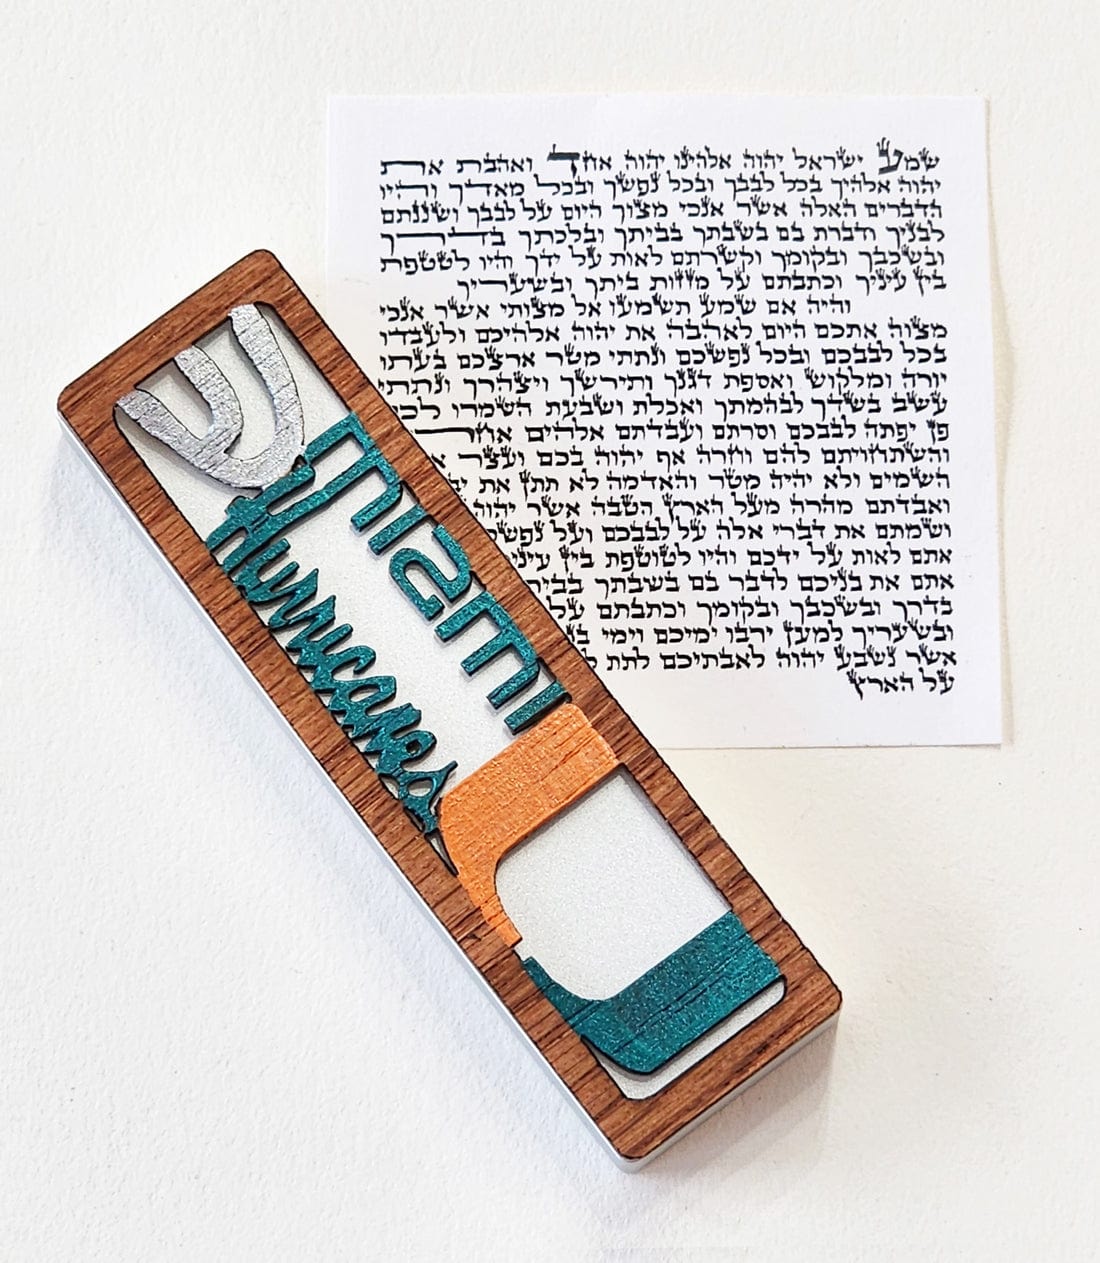 שמע ישראל יהוה אלהינו יהוה אחד ואהבת את
יהוה אלהיך בכל לבבך ובכל נפשך ובכל מאדך והיו
הדברים האלה אשר אנכי מצוך היום על לבבך ושננתם
לבניך ודברת בם בשבתך בביתך ובלכתך בדרך
ובשכבך ובקומך וקשרתם לאות על ידך והיו לטטפת
בין עיניך וכתבתם על מזזות ביתך ובשעריך
והיה אם שמע תשמעו אל מצותי אשר אנכי
מצוה אתכם היום לאהבה את יהוה אלהיכם ולעבדו
בכל לבבכם ובכל נפשכם ונתתי מטר ארצכם בעתו
יורה ומלקוש ואספת דגנך ותירשך ויצהרך ונתתי
עשב בשדך לבהמתך ואכלת ושבעת השמרו לכם
פן יפתה לבבכם וסרתם ועבדתם אלהים
והשתחויתם להם וחרה אף יהוה בכם ועצר
השמים ולא יהיה מטר והאדמה לא תתן את
ואבדתם מהרה מעל הארץ הטבה אשר יהוה
ושמתם את דברי אלה על לבבכם ועל
אתם לאות על ידכם והיו לטוטפת בין
אתם את בניכם לדבר בם בשבתך
בדרך ובשכבך ובקומך וכתבתם על
ובשעריך למען ירבו ימיכם וימי
אשר נשבע יהוה לאבתיכם לתת
על הארץ
ש
miami
Hurricanes